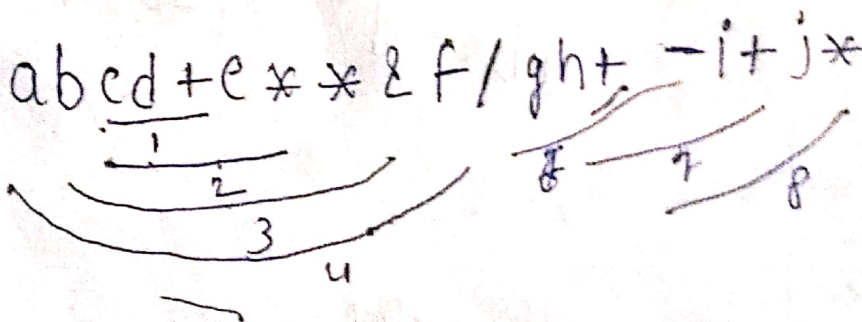 abcd+e**&f/gh+ -i+j*
1
2
3
4
6 7 8